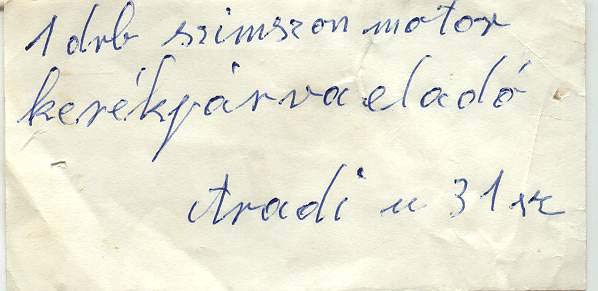 1 drb szimszon motor
kerékpárva eladó
Aradi u 31 sz